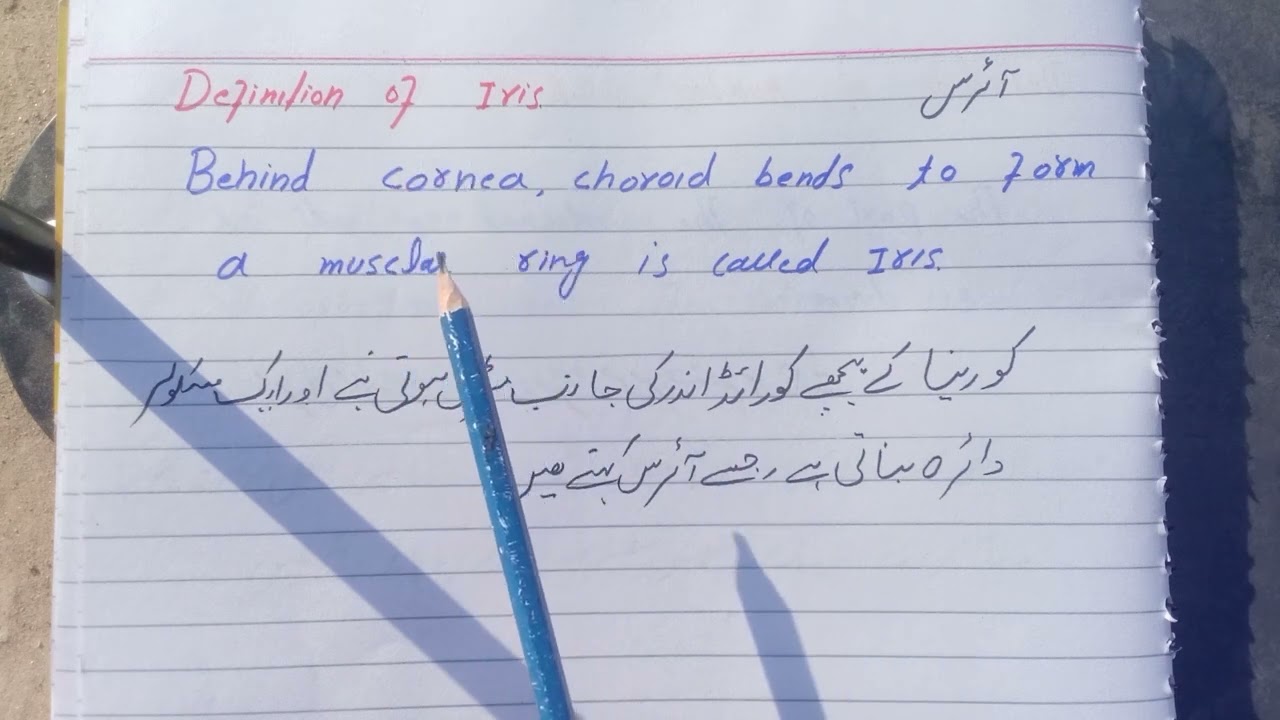 Definition of Iris آئرس
Behind cornea, choroid bends to form
a muscular ring is called Iris.
کورنیا کے پیچھے کورائڈ اندر کی جانب ہوتی ہے اور ایک مسکولر
دائرہ بناتی ہے جسے آئرس کہتے ہیں